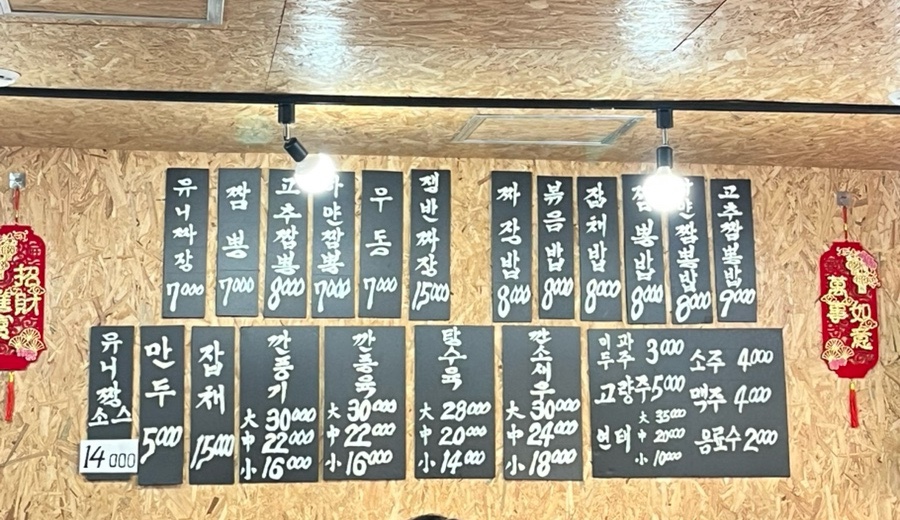 유니짜장 7000
짬뽕 7000
고추짬뽕 8000
얀짬뽕 7000
우동 7000
쟁반짜장 15000
짜장밥 8000
볶음밥 8000
잡채밥 8000
짬뽕밥 8000
얀짬뽕밥 8000
고추짬뽕밥 9000
유니짱소스 14000
만두 5000
잡채 15000
깐풍기
大 30000
中 22000
小 16000
깐풍육
大 30000
中 22000
小 16000
탕수육
大 28000
中 20000
小 14000
깐소새우
大 30000
中 24000
小 18000
이과두주 3000
고량주 5000
연태
大 35000
中 20000
小 10000
소주 4000
맥주 4000
음료수 2000
招財
萬事如意